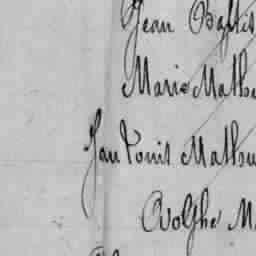 Jean Baptis
Marie Mathu
Jean Louis Mathu
Adolphe M